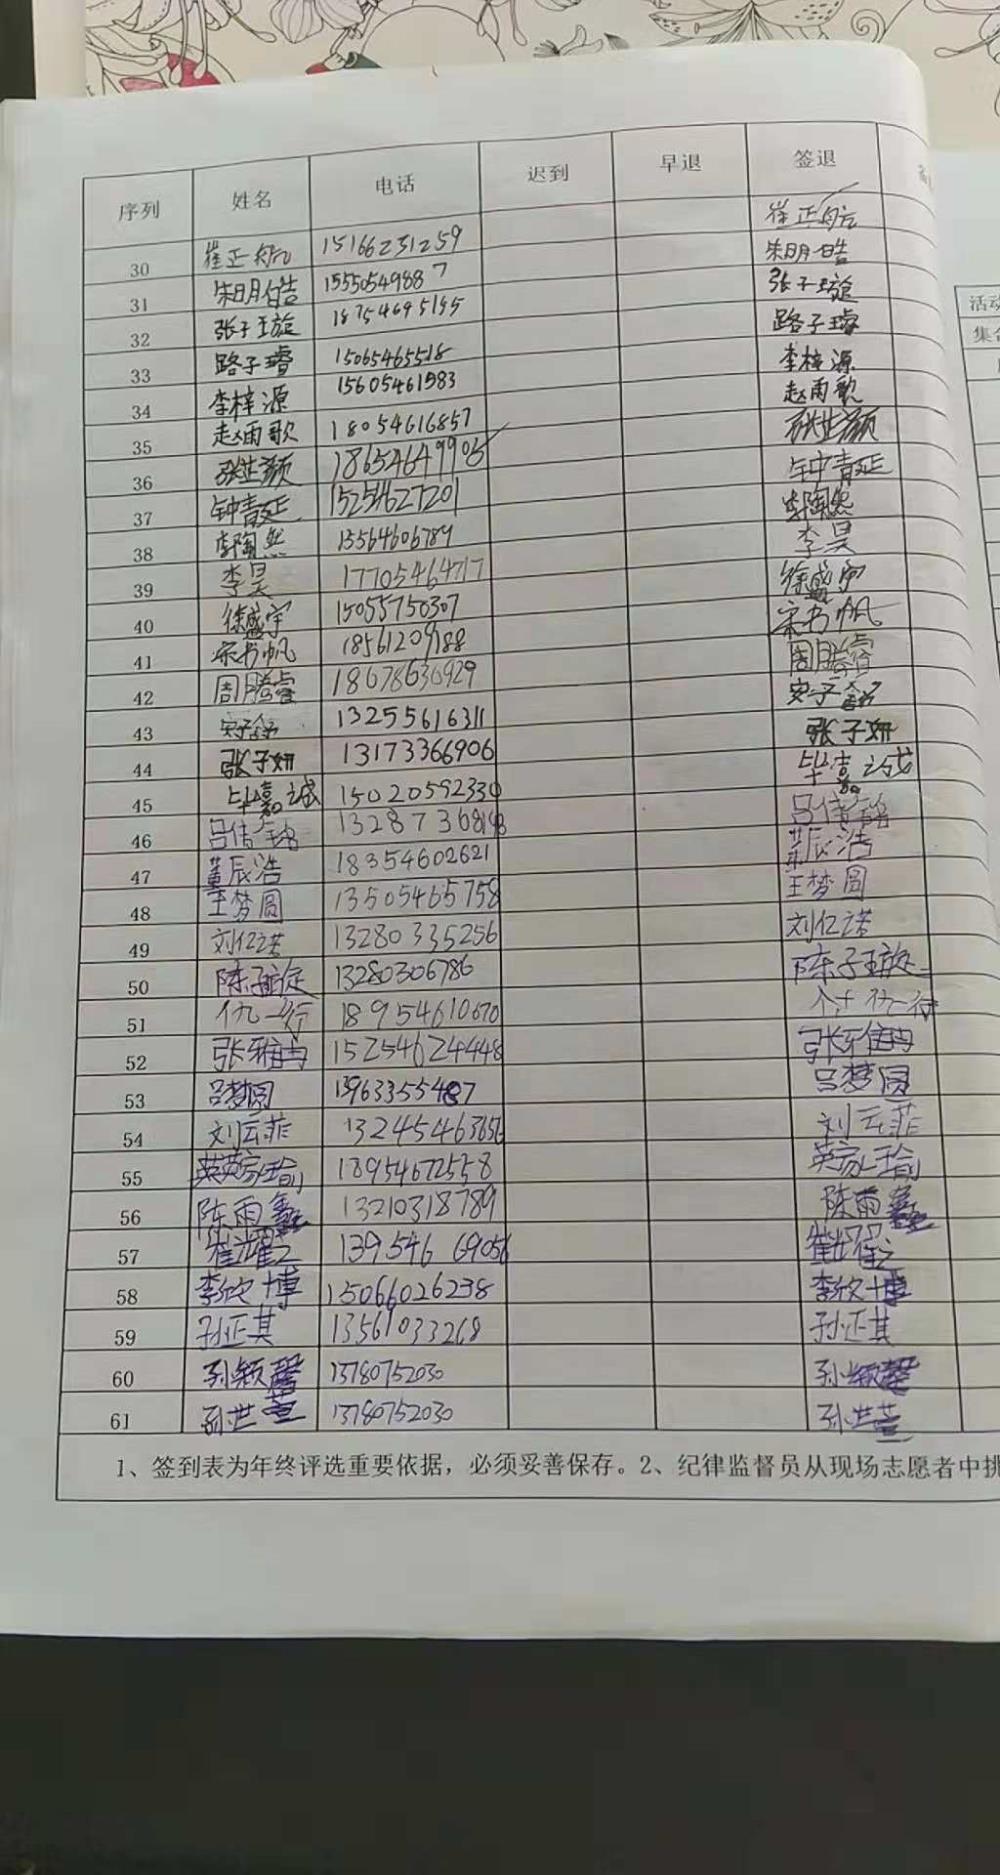 序列 姓名 电话 迟到 早退 签退
30 崔正航 15166231259 崔正航
31 朱明皓 15550549887 朱明皓
32 张子璇 18754695155 张子璇
33 路子璿 15065465518 路子璿
34 李梓源 15605461983 李梓源
35 赵雨歌 18054616857 赵雨歌
36 18654649906
37 钟青延 15254627201 钟青延
38 李陶然 13564606789 李陶然
39 李昊 17705464717 李昊
40 徐盛宇 15055750307 徐盛宇
41 宋书帆 18561209188 宋书帆
42 周腾睿 18678636929 周腾睿
43 13255616311
44 张子妍 13173366906 张子妍
45 毕嘉诚 15020592330 毕嘉诚
46 吕倩
47 董辰浩 18354602621 董辰浩
48 王梦圆 13505465758 王梦圆
49 刘亿诺 13280335256 刘亿诺
50 陈子璇 13280306786 陈子璇
51 仇一行 18954610670 仇一行
52 张雅冉 15254624448 张雅冉
53 吕梦圆 13963355487 吕梦圆
54 刘云菲 13245463656 刘云菲
55 18954672558
56 陈雨鑫 13210318789 陈雨鑫
57 崔耀之 13954669056 崔耀之
58 李欣博 15066026238 李欣博
59 孙正其 13561033268 孙正其
60 孙颖馨 13780752030 孙颖馨
61 孙世萱 13780752030 孙世萱
1、签到表为年终评选重要依据，必须妥善保存。2、纪律监督员从现场志愿者中挑
活动
集合